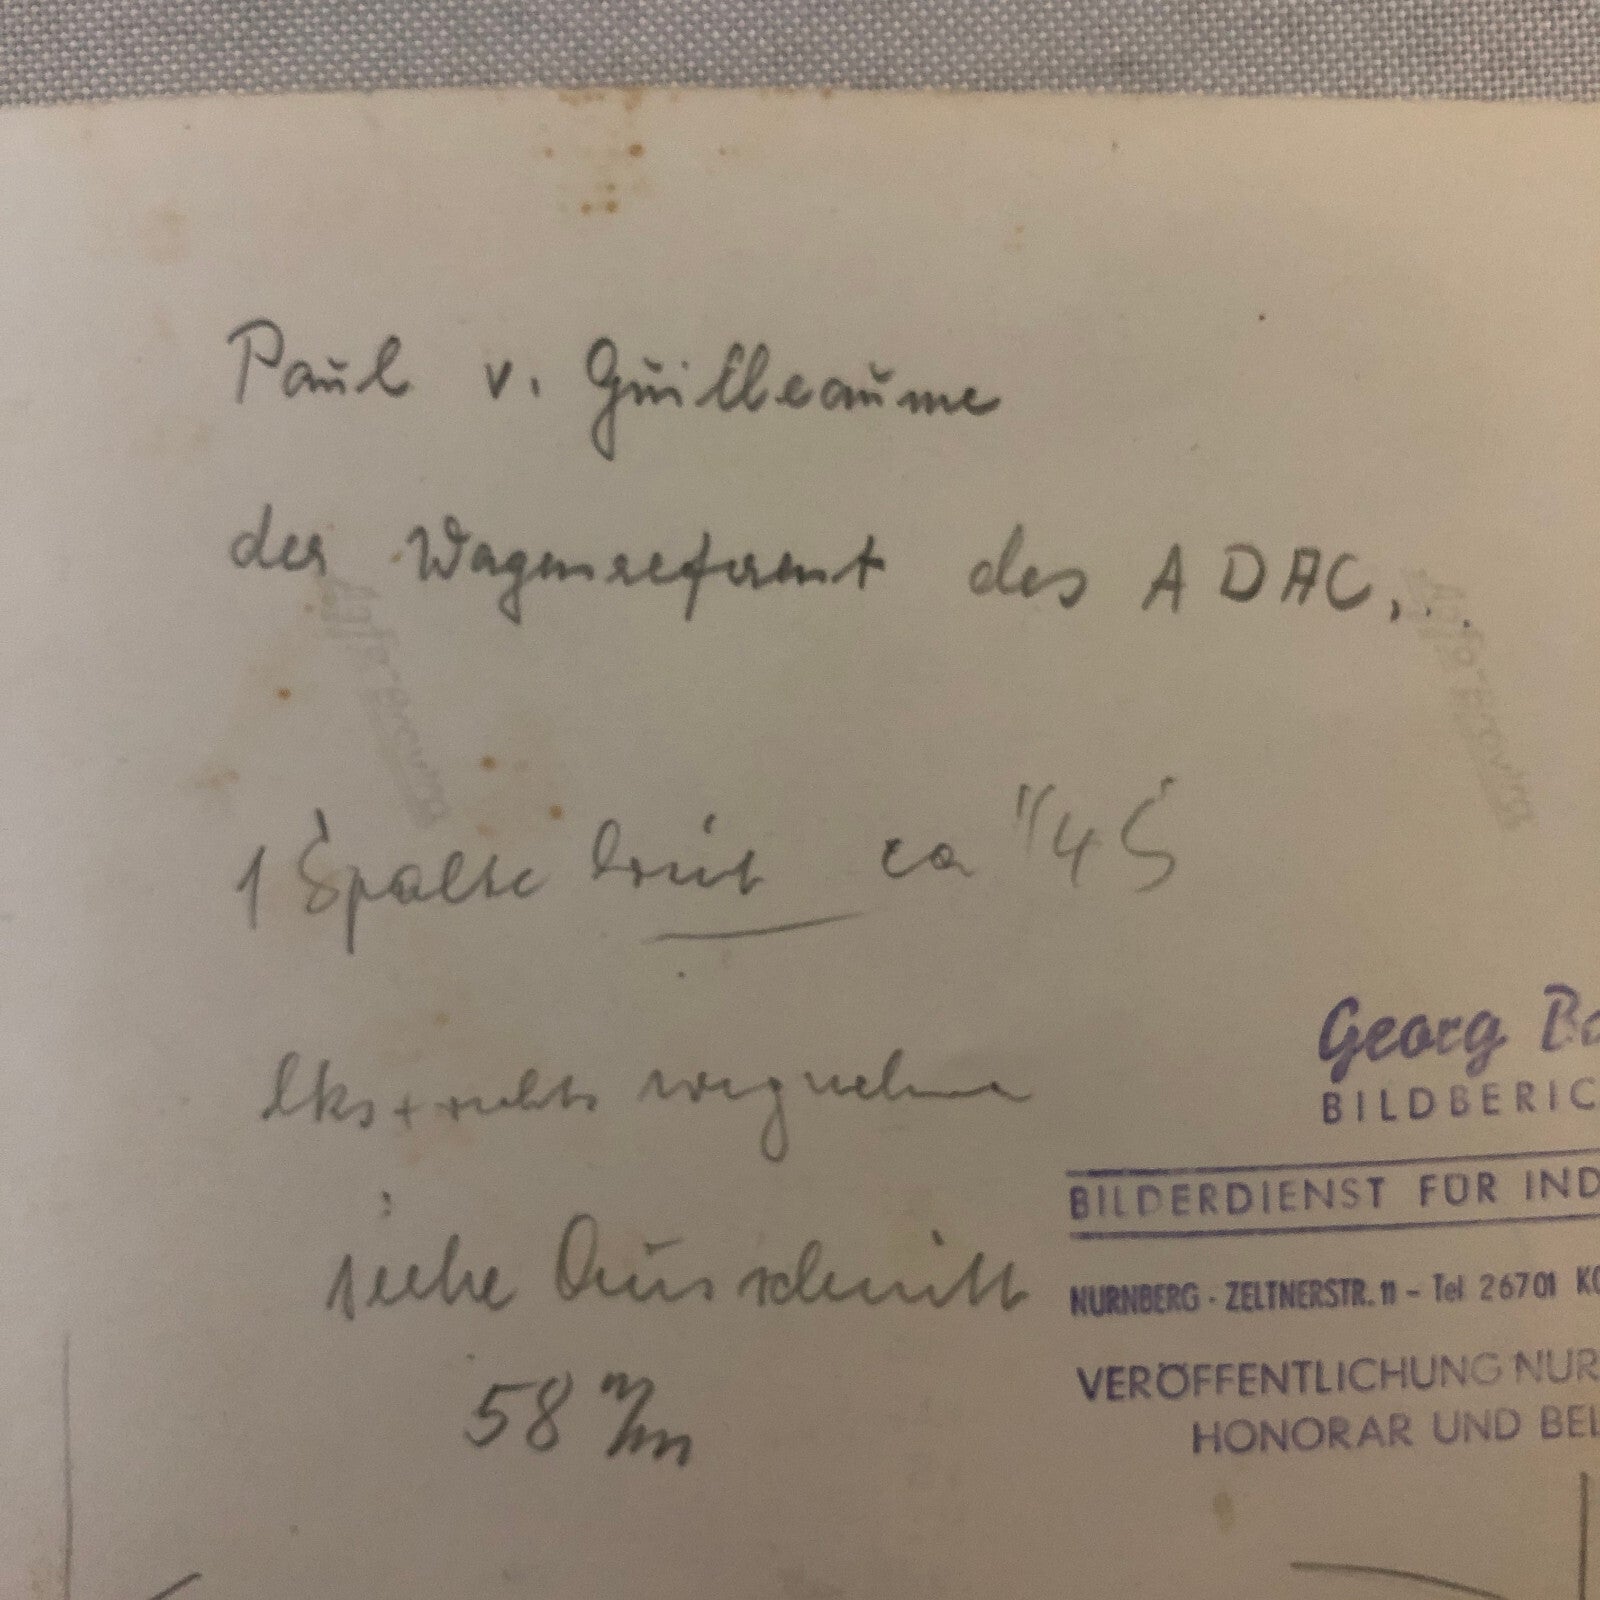 Paul v. Guilleaume
der Wagenreferent des ADAC,..
1 Spalte breit ca 1/4 S
lks + rechts wegnehmen
siehe Ausschnitt
58 m/m
Georg B
BILDBERIC
BILDERDIENST FÜR IND
NÜRNBERG · ZELTNERSTR. 11 - Tel 26701 KO
VERÖFFENTLICHUNG NUR
HONORAR UND BEL